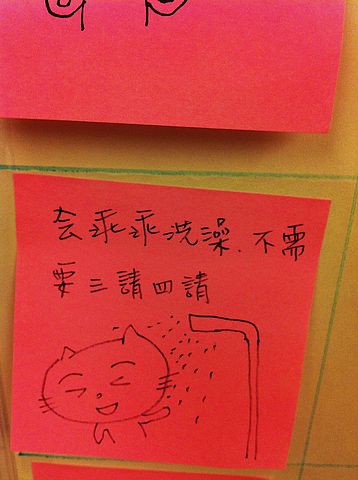 会乖乖洗澡.不需
要三請四請